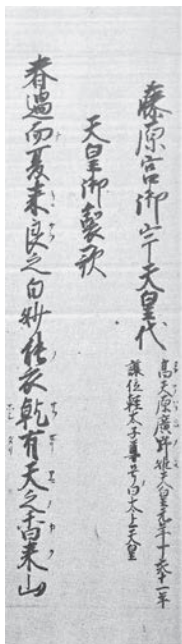 藤原宮御宇天皇代
高天原廣野姫天皇元年丁亥十一年
讓位軽太子尊号曰太上天皇
天皇御製歌
春過而夏来良之白妙能衣乾有天之香来山